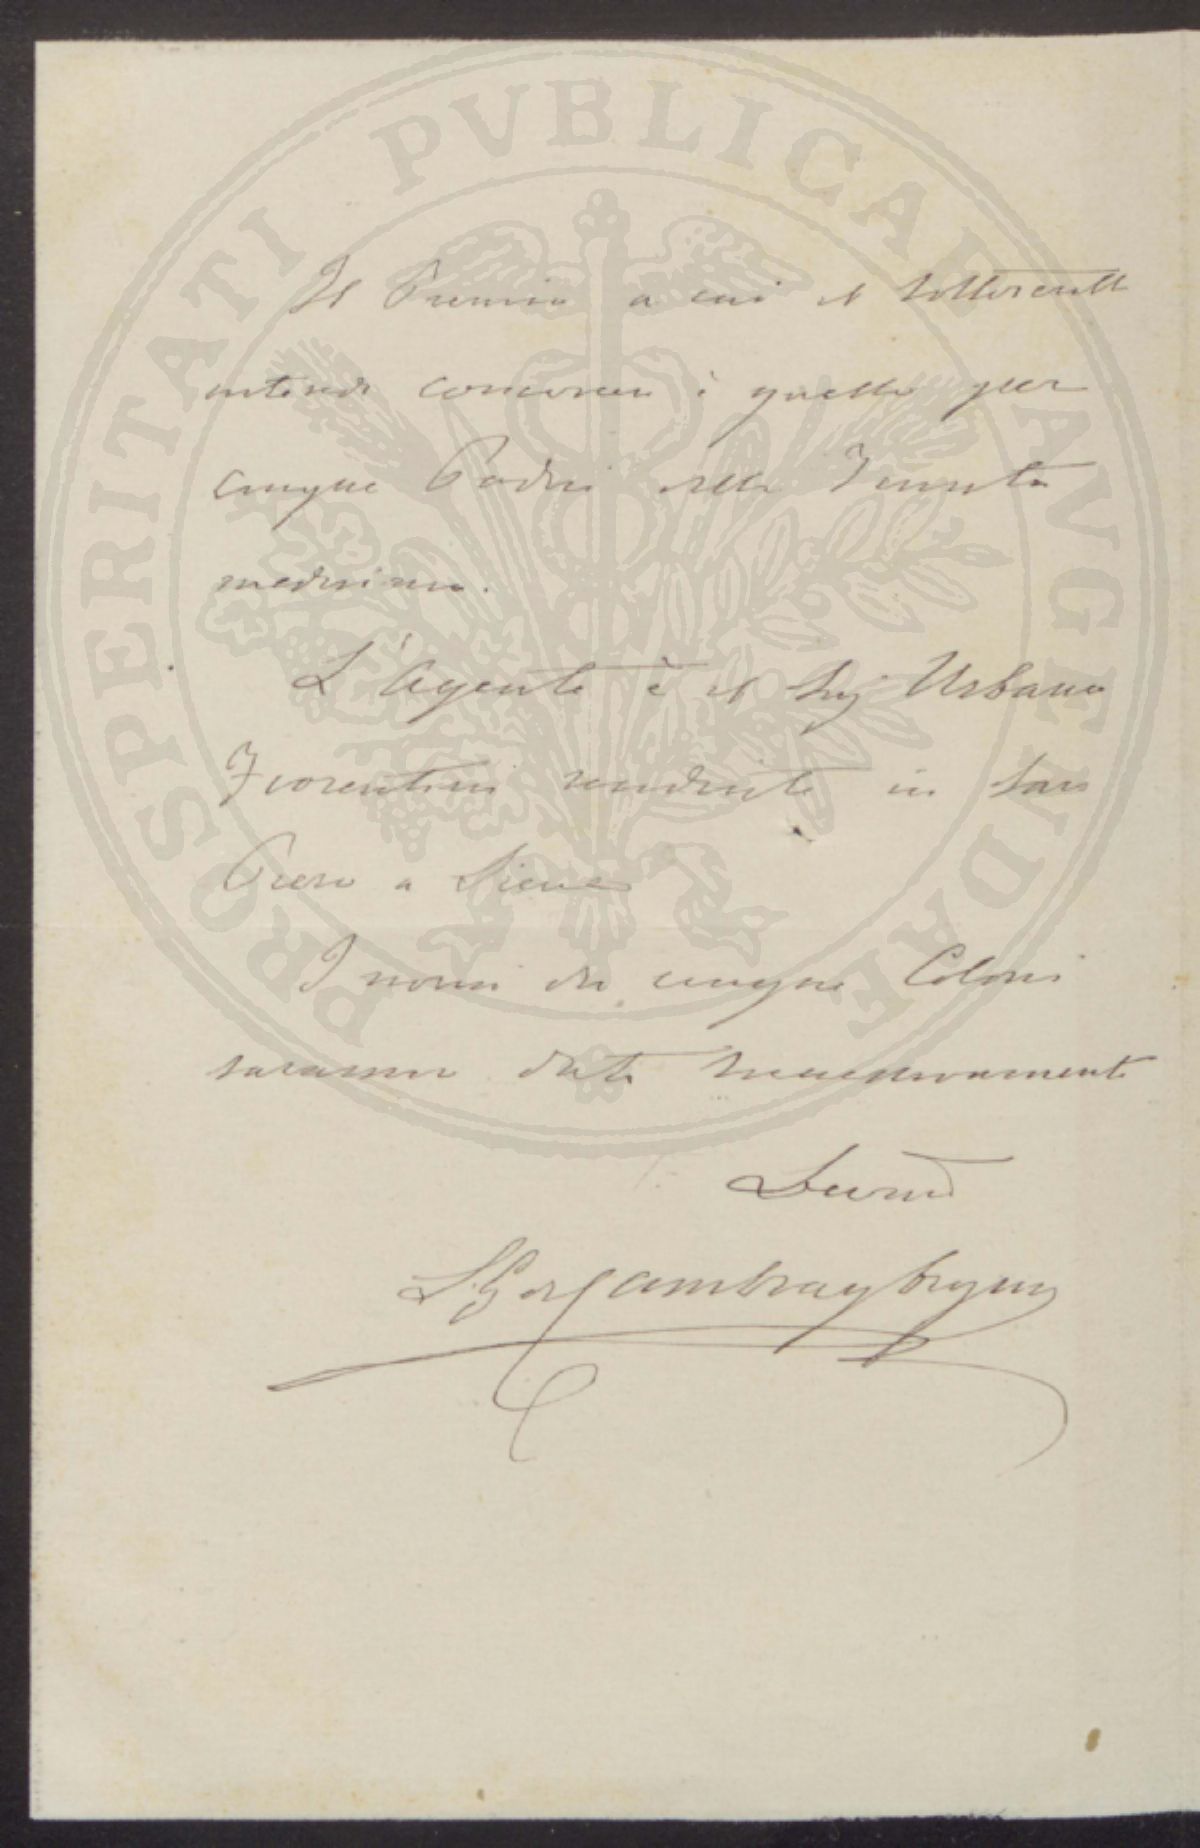 PROSPERITATI PVBLICAE AVGENDAE
Il Premio a cui il sottoscritto
intende concorrere è quello per
cinque Poderi della Tenuta
medesima.
L'Agente è il Sig Urbano
Fiorentini residente in San
Piero a Sieve
I nomi dei cinque Coloni
saranno dati successivamente
Cambray Digny